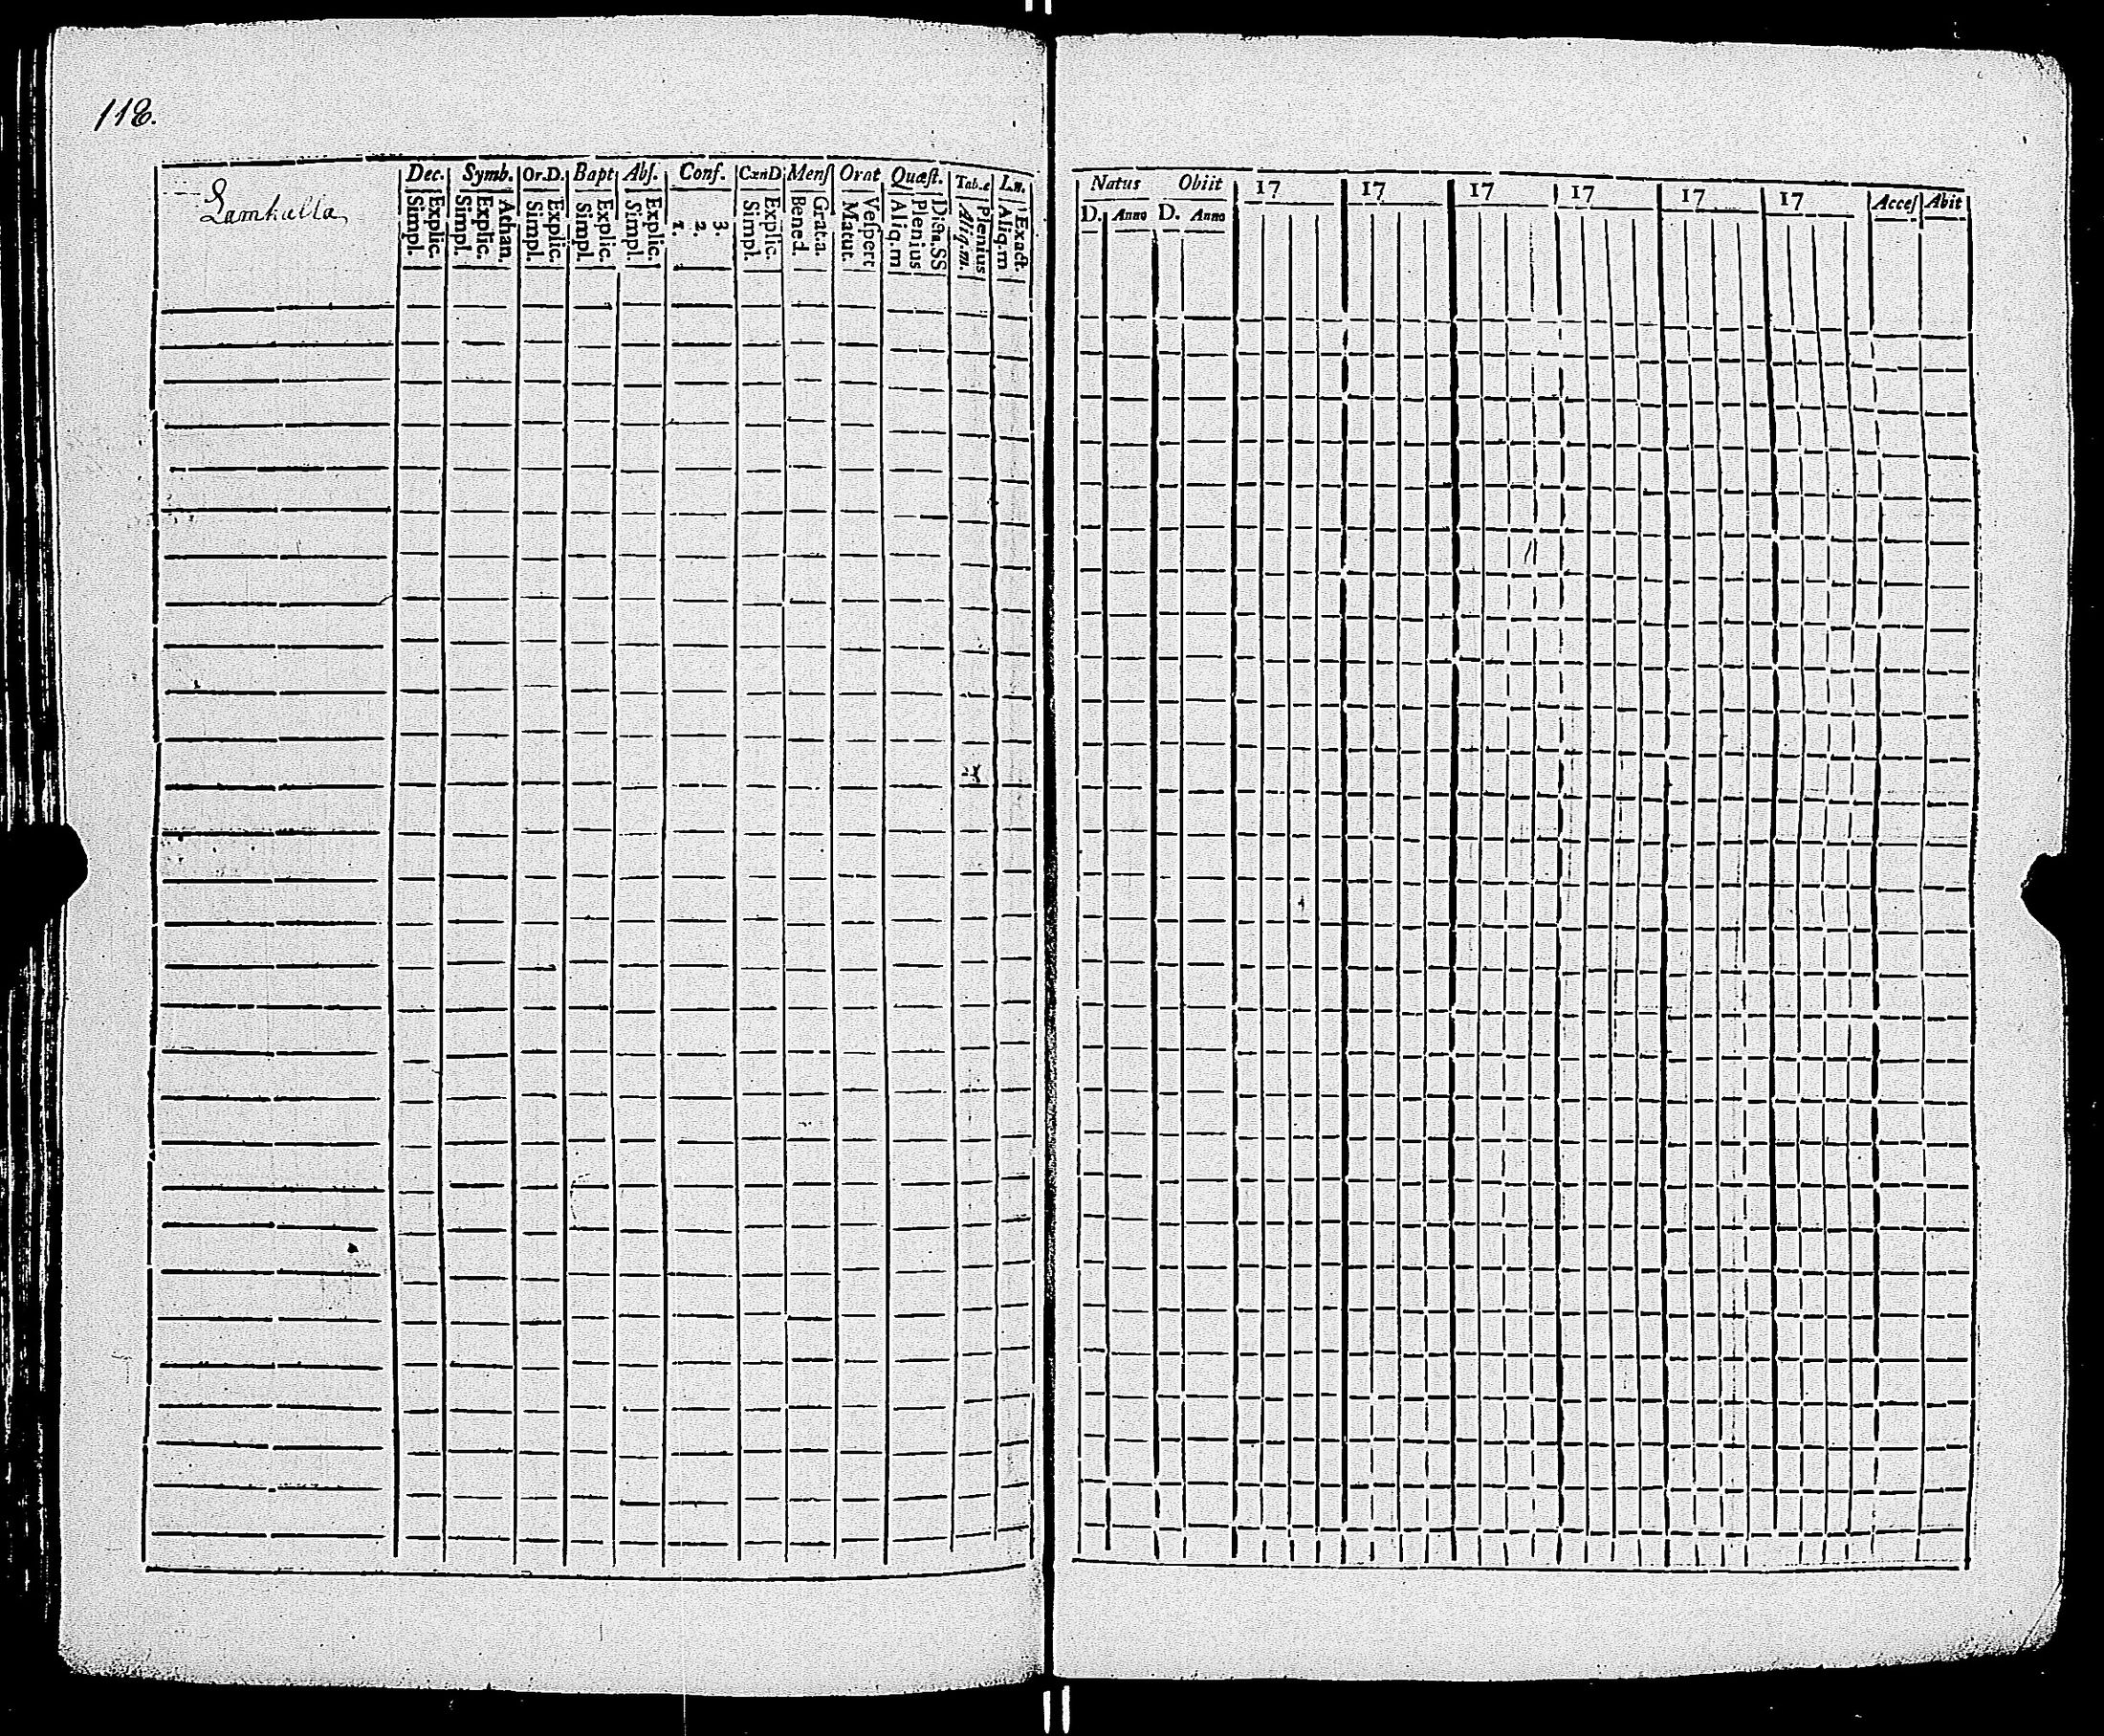 118.
Lamkulla
Dec. Symb. Or.D. Bapt Abſ. Conf. CænD Menſ Orat Quæſt. Tab.æ L.n.
Simpl. Explic. Simpl. Explic. Athan. Simpl. Explic. Simpl. Explic. Simpl. Explic. 1. 2. 3. Simpl. Explic. Bened. Grat.a. Matut. Veſpert Aliq.m Plenius Dict.SS Aliq.m. Plenius Aliq.m Exact.
Natus Obiit 17 17 17 17 17 17 Acceſ Abit
D. Anno D. Anno